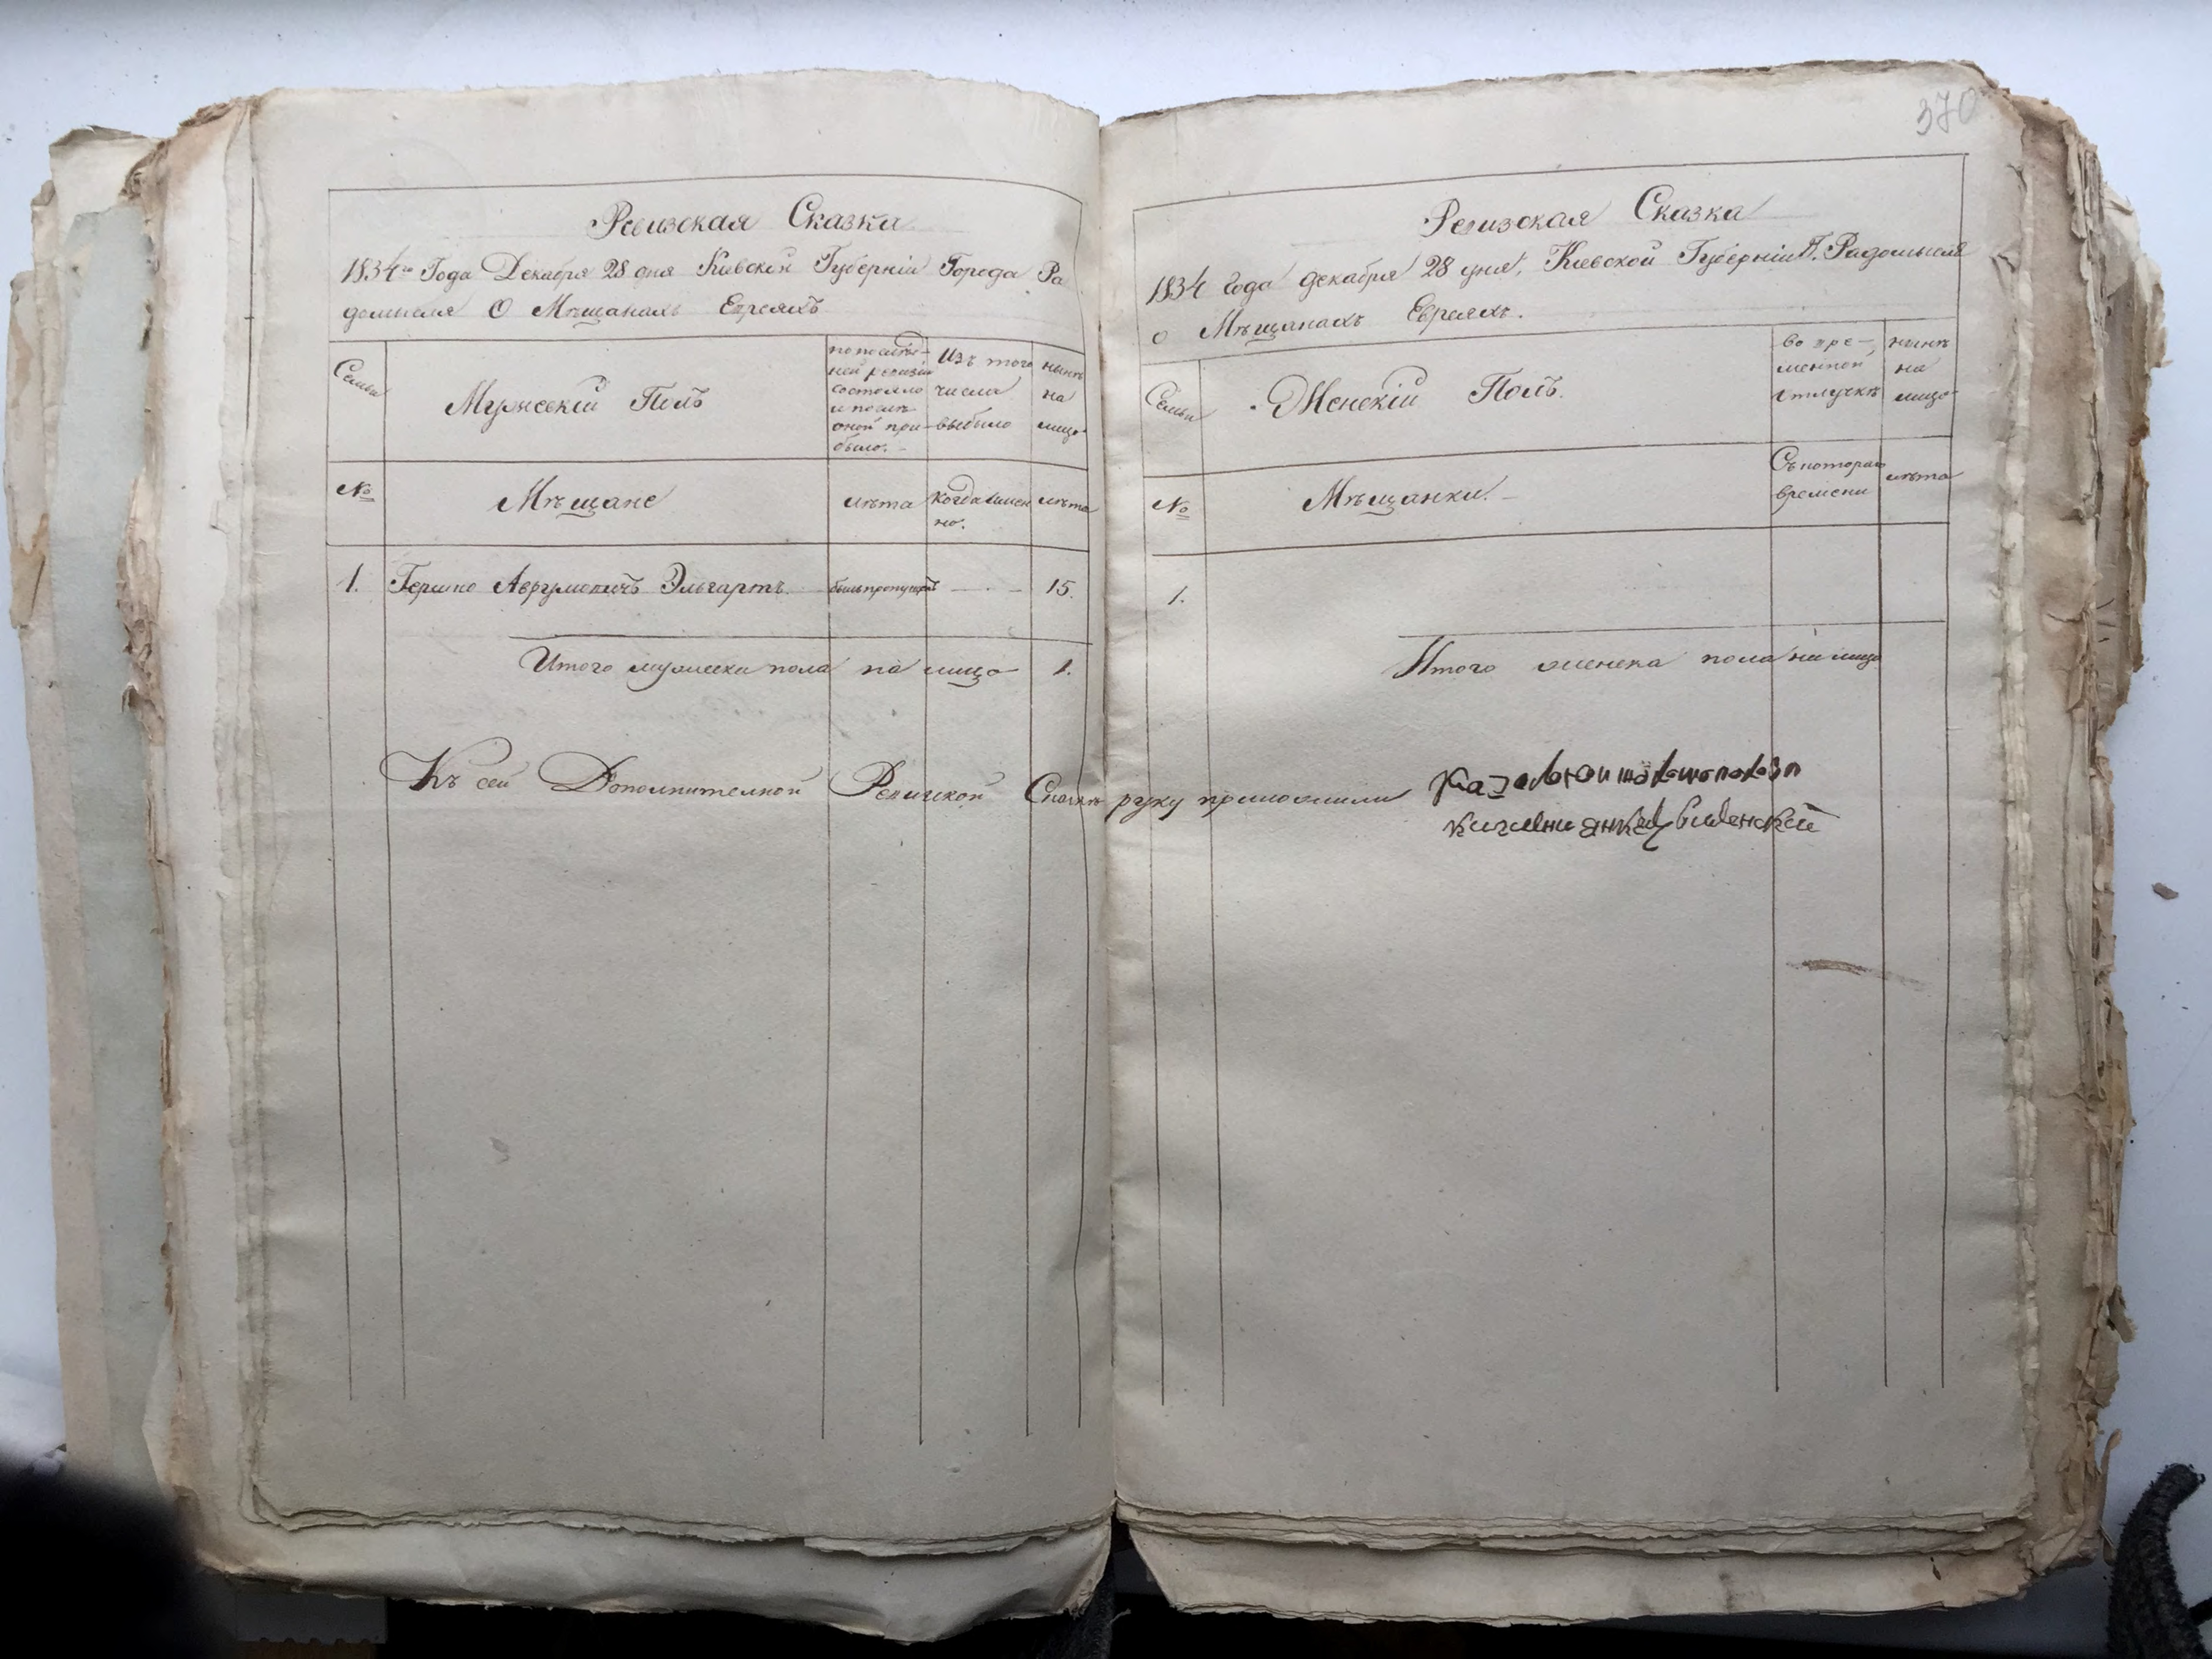 370
Ревизская Сказка
1834го Года Декабря 28 дня Киевской Губерніи Города Ра
домысля О Мѣщанахъ Евреяхъ
Семьи
Мужескій Полъ
по послѣд-
ней ревизіи
состояло
и послѣ
оной при-
было.
Изъ того
числа
выбыло
нынѣ
на
лицо
№
Мѣщане
лѣта
когда имен
но.
лѣта
1. Гершко Аврумовичъ Эльгартъ былъ пропущенъ 15.
Итого мужеска пола на лицо 1.
Ревизская Сказка
1834 года декабря 28 дня, Киевской Губерніи Г. Радомысля
о Мѣщанахъ Евреяхъ.
Семьи
Женскій Полъ.
во вре-
менной
отлучкѣ
нынѣ
на
лицо
№
Мѣщанки.
Съ котораго
времени
лѣта
1.
Итого женска пола на лицо
Къ сей Дополнителной Ревизской Сказкѣ руку приложили